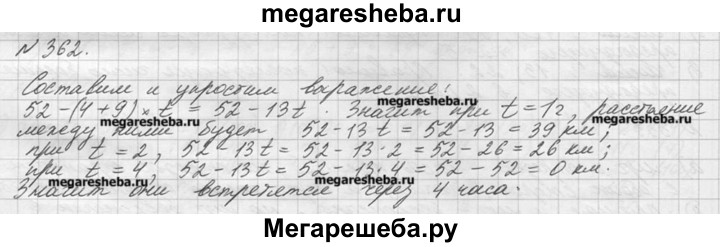 megaresheba.ru
N 362.
Составим и упростим выражение:
52-(4+9)×t = 52-13t. Значит при t=1г, расстояние
между ними будет 52-13t = 52-13 = 39 км;
при t=2, 52-13t = 52-13·2 = 52-26 = 26 км;
при t=4, 52-13t = 52-13·4 = 52-52 = 0 км.
megaresheba.ru megaresheba.ru
Значит они встретятся через 4 часа.
Мегарешеба.ру